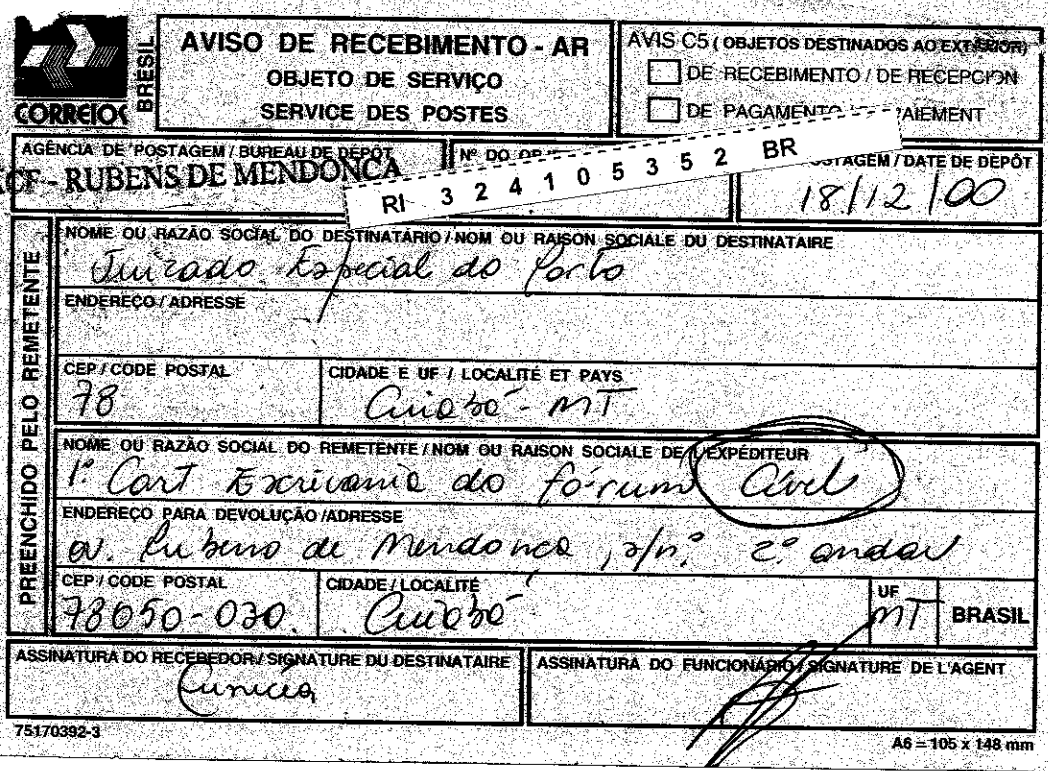 CORREIOS
BRESIL
AVISO DE RECEBIMENTO - AR
OBJETO DE SERVIÇO
SERVICE DES POSTES
AVIS C5 ( OBJETOS DESTINADOS AO EXTERIOR)
DE RECEBIMENTO / DE RECEPCION
DE PAGAMENTO AIEMENT
AGÊNCIA DE POSTAGEM / BUREAU DE DÉPÔT
ACF - RUBENS DE MENDONCA
Nº DO
RI 3 2 4 1 0 5 3 5 2 BR
OSTAGEM / DATE DE DÉPÔT
18/12/00
PREENCHIDO PELO REMETENTE
NOME OU RAZÃO SOCIAL DO DESTINATÁRIO / NOM OU RAISON SOCIALE DU DESTINATAIRE
Juizado Especial do Porto
ENDEREÇO / ADRESSE
CEP / CODE POSTAL
78
CIDADE E UF / LOCALITÉ ET PAYS
Cuiabá - MT
NOME OU RAZÃO SOCIAL DO REMETENTE / NOM OU RAISON SOCIALE DE L'EXPÉDITEUR
1ª Cart Escrivania do fórum Cível
ENDEREÇO PARA DEVOLUÇÃO /ADRESSE
av. Rubens de Mendonça, s/nº 2º andar
CEP / CODE POSTAL
78050-030.
CIDADE / LOCALITÉ
Cuiabá
UF
MT
BRASIL
ASSINATURA DO RECEBEDOR / SIGNATURE DU DESTINATAIRE
ASSINATURA DO FUNCIONÁRIO / SIGNATURE DE L'AGENT
75170392-3
A6 = 105 x 148 mm